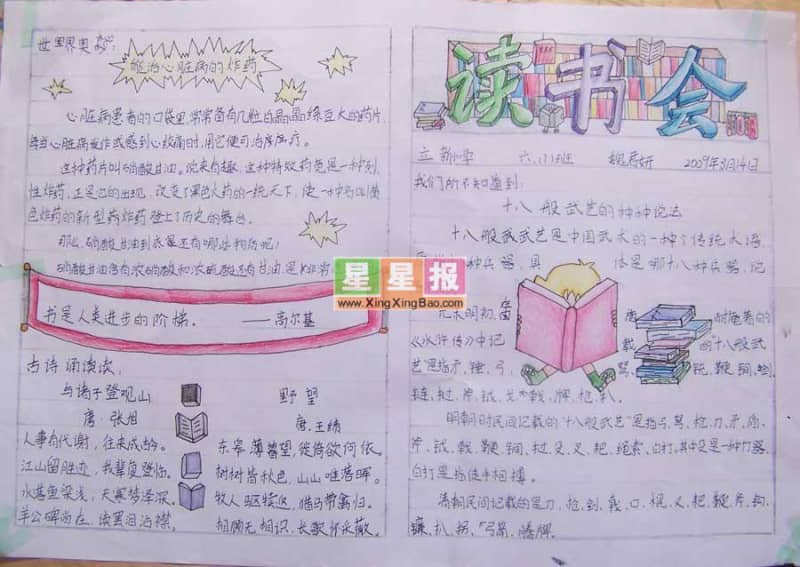 世界奥妙：
能治心脏病的炸药
心脏病患者的口袋里，常常备有几粒白晶晶绿豆大的药片，
每当心脏病发作或感到心绞痛时，用它便可治疗医疗。
这种药片叫硝酸甘油。说来有趣，这种特效药竟是一种烈
性炸药，正是它的出现，改变了黑色火药的一统天下，使一种
色炸药的新型炸药登上了历史的舞台。
那么，硝酸甘油到底还有哪些构质呢！
硝酸甘油含有浓硝酸和浓硫酸还有甘油，是
书是人类进步的阶梯。——高尔基
古诗诵读：
与诸子登观山
唐·张旭
人事有代谢，往来成古今。
江山留胜迹，我辈复登临。
水落鱼梁浅，天寒梦泽深。
羊公碑尚在，读罢泪沾襟。
野望
唐·王绩
东皋薄暮望，徙倚欲何依。
树树皆秋色，山山唯落晖。
牧人驱犊返，猎马带禽归。
相顾无相识，长歌怀采薇。
读书会
立新小学 六、(1)班 2009年3月14日
我们所不知道到：
十八般武艺的种种说法
十八般武武艺是中国武术的一种个传统术语，
种兵器，具体是哪十八种兵器，记
元末明初，
《水浒传》中记载的十八般武
艺"是指矛、锤、弓、弩、铳、鞭、锏、剑、
链、挝、斧、钺、戈、戟、牌、枪、扒。
明朝时民间记载的"十八般武艺"是指弓、弩、枪、刀、矛、盾、
斧、钺、戟、鞭、锏、挝、殳、叉、耙、绳索、白打。其中只是一种刀器，
白打是指徒手相搏。
清朝民间记载的是刀、枪、剑、戟、口、棍、叉、耙、鞭、斧、钩、
镰、扒、拐、弓箭、藤牌。
星星报
www.XingXingBao.com